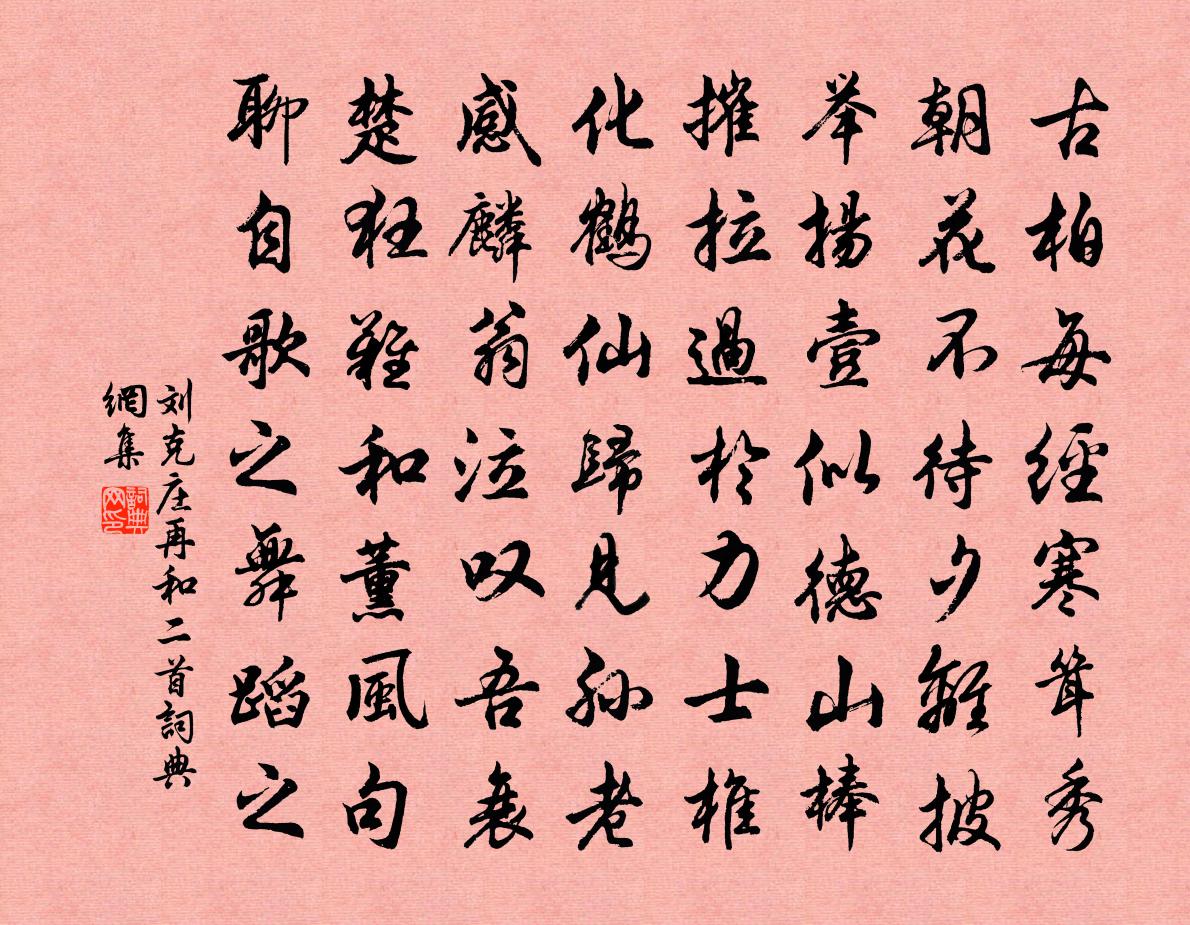 古柏每經寒耸秀
朝花不待夕離披
举揚壹似德山棒
摧拉過於力士椎
化鶴仙歸見孙老
感麟翁泣叹吾衰
楚狂難和薰風句
聊自歌之舞蹈之
刘克庄再和二首詞典
網集
詞典網印